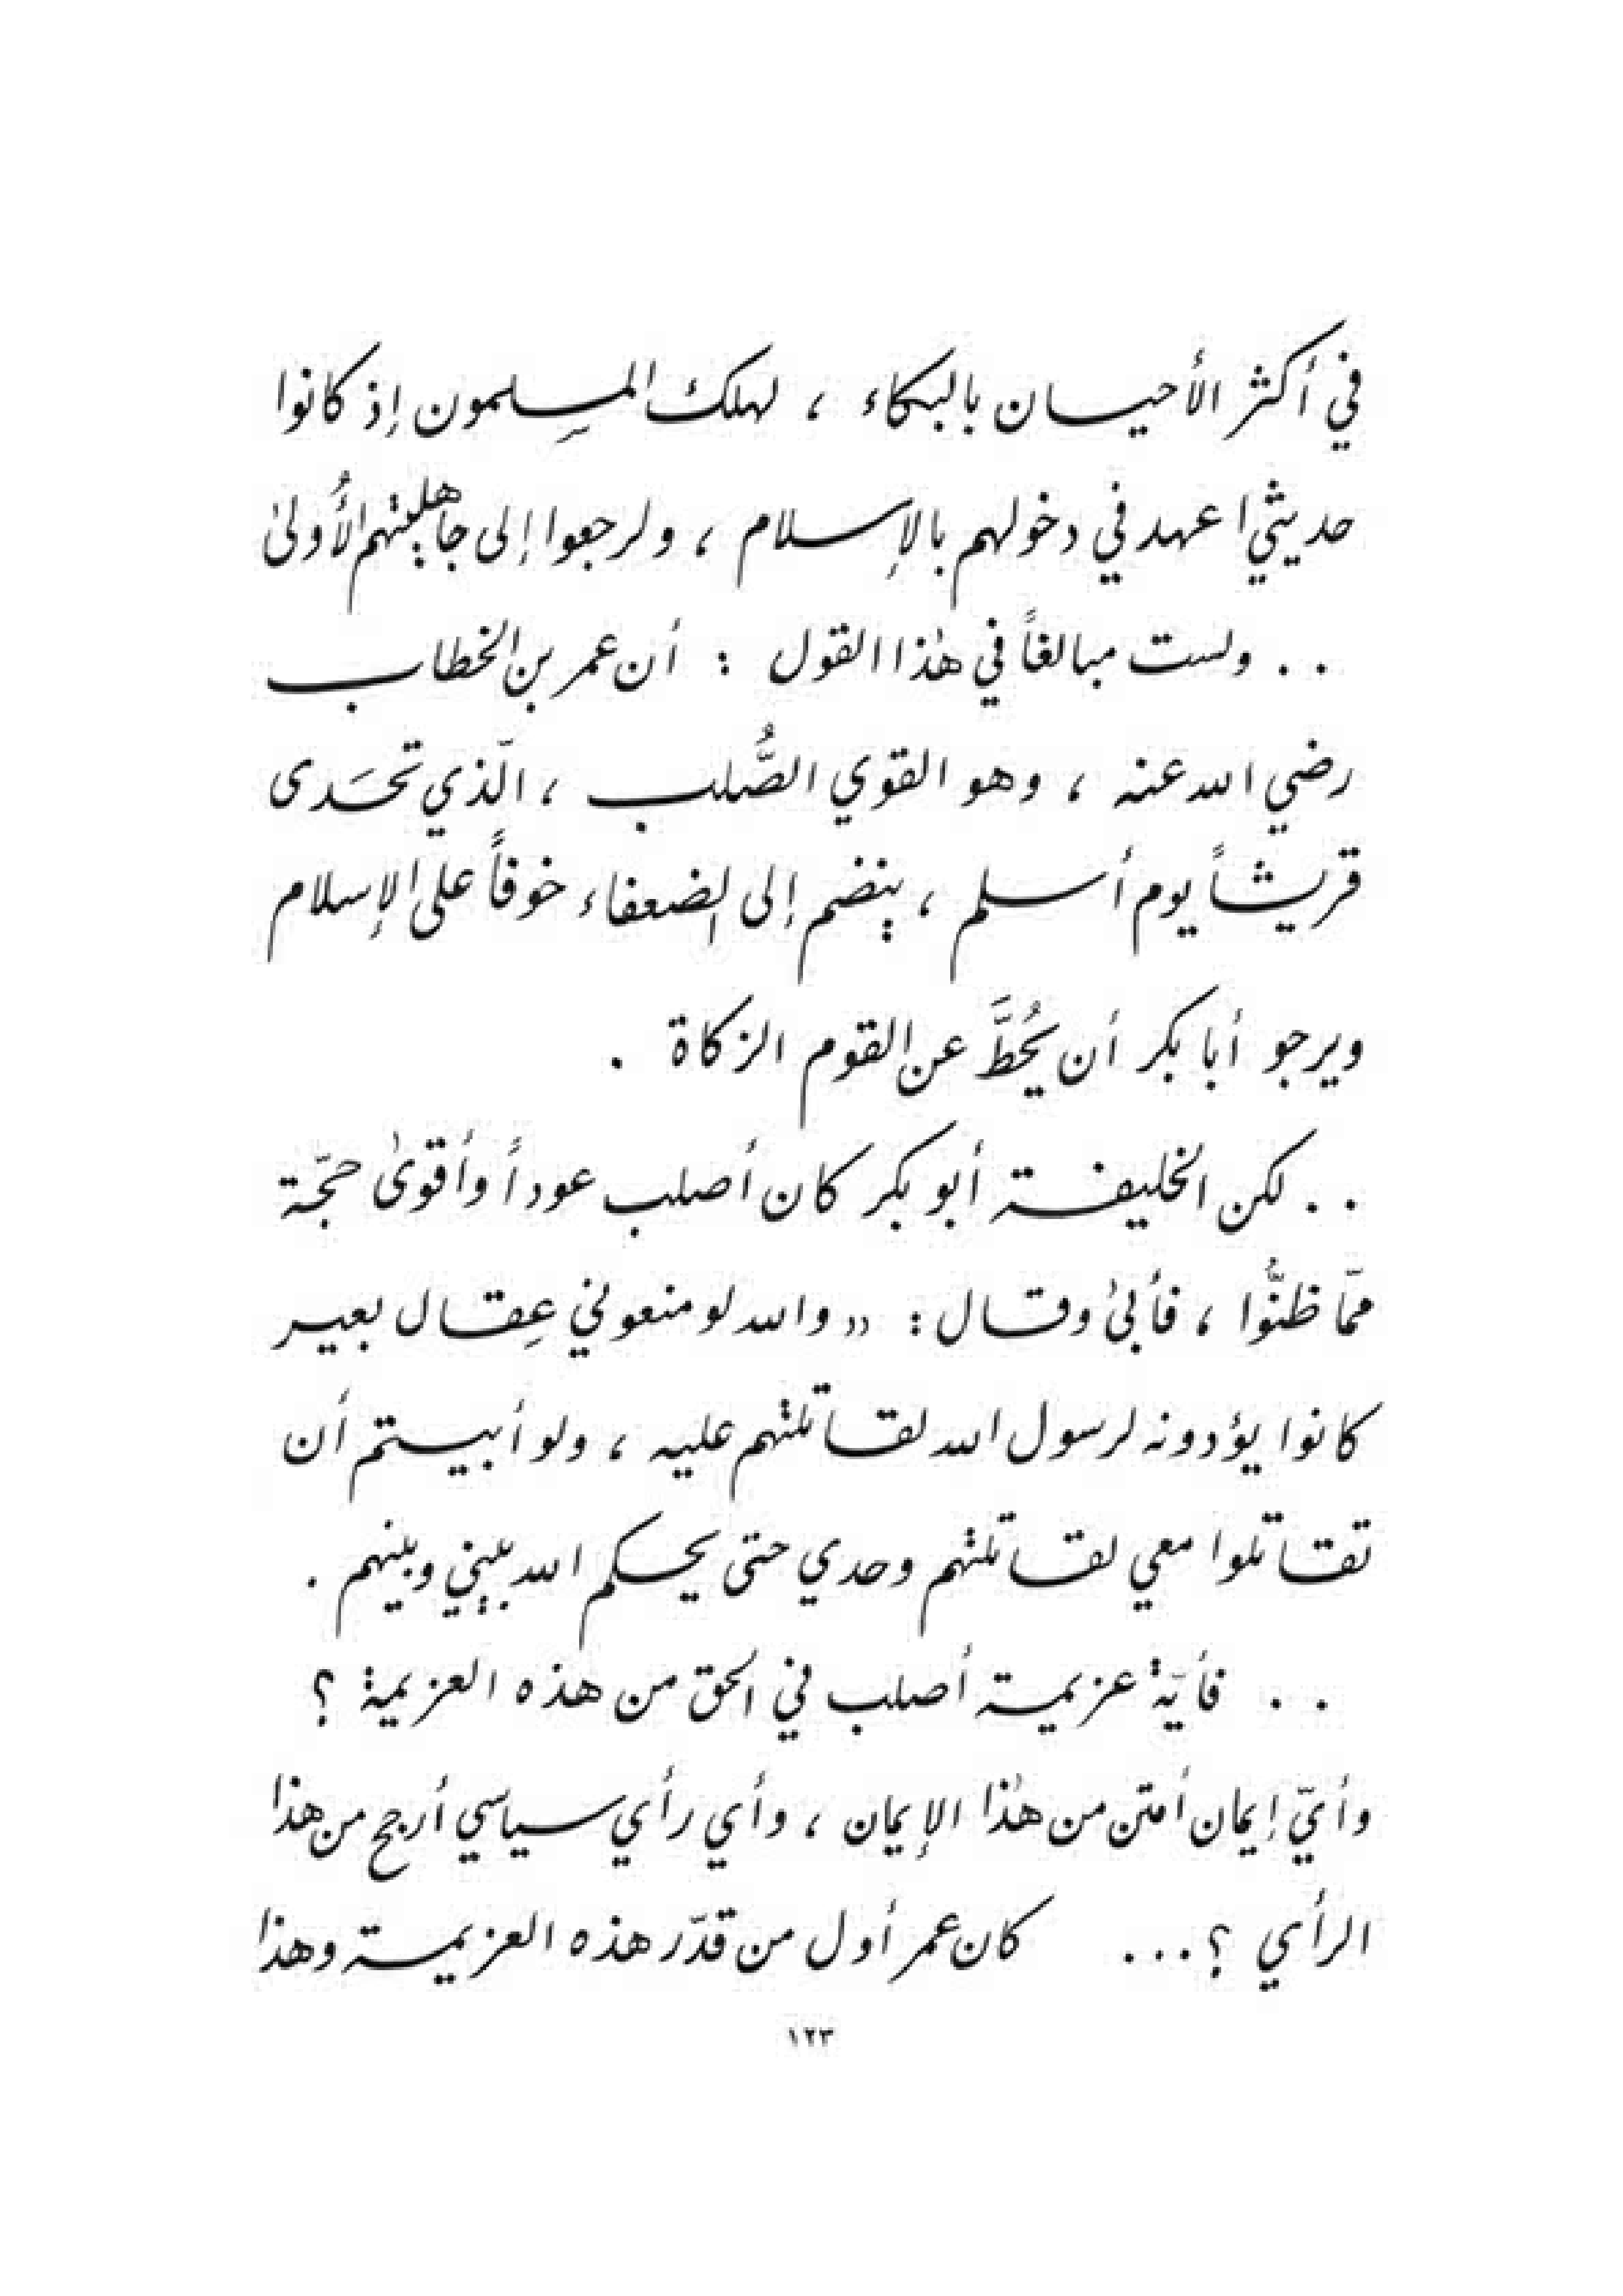 في أكثر الأحيان بالبكاء ، لهلك المسلمون إذ كانوا
حديثي اعهد في دخولهم بالإسلام ، ولرجعوا إلى جاهليتهم الأُولىٰ
. . ولست مبالغاً في هٰذا القول : أن عمر بن الخطاب
رضي الله عنه ، وهو القوي الصُّلب ، الّذي تحَدى
قريشاً يوم أسلم ، ينضم إلى الضعفاء خوفاً على الإسلام
ويرجو أبا بكر أن يُحُطَّ عن القوم الزكاة .
. . لكن الخليفة أبو بكر كان أصلب عوداً وأقوىٰ حجّة
ممّا ظنُّوا ، فأبىٰ وقال : « والله لو منعوني عِقال بعير
كانوا يؤدونه لرسول الله لقاتلتهم عليه ، ولو أبيستم أن
تقاتلوا معي لقاتلتهم وحدي حتى يحكم الله بيني وبينهم .
. . فأيّة عزيمة أصلب في الحق من هذه العزيمة ؟
وأيّ إيمان أمتن من هٰذا الإيمان ، وأي رأي سياسي أرجح من هذا
الرأي ؟ ... كان عمر أول من قدّر هذه العزيمة وهذا
١٢٣